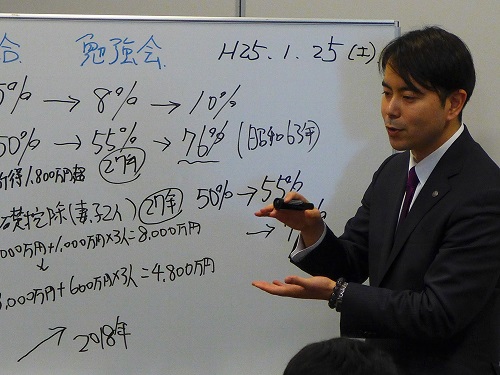 合 勉強会 H25.1.25(土)
5% → 8% → 10%
50% → 55% → 76% (昭和63年)
27年
所得1,800万円超
50% → 55%
礎控除(妻、子2人) 27年
000万円+1,000万円×3人=8,000万円
3,000万円+600万円×3人=4,800万円
2018年